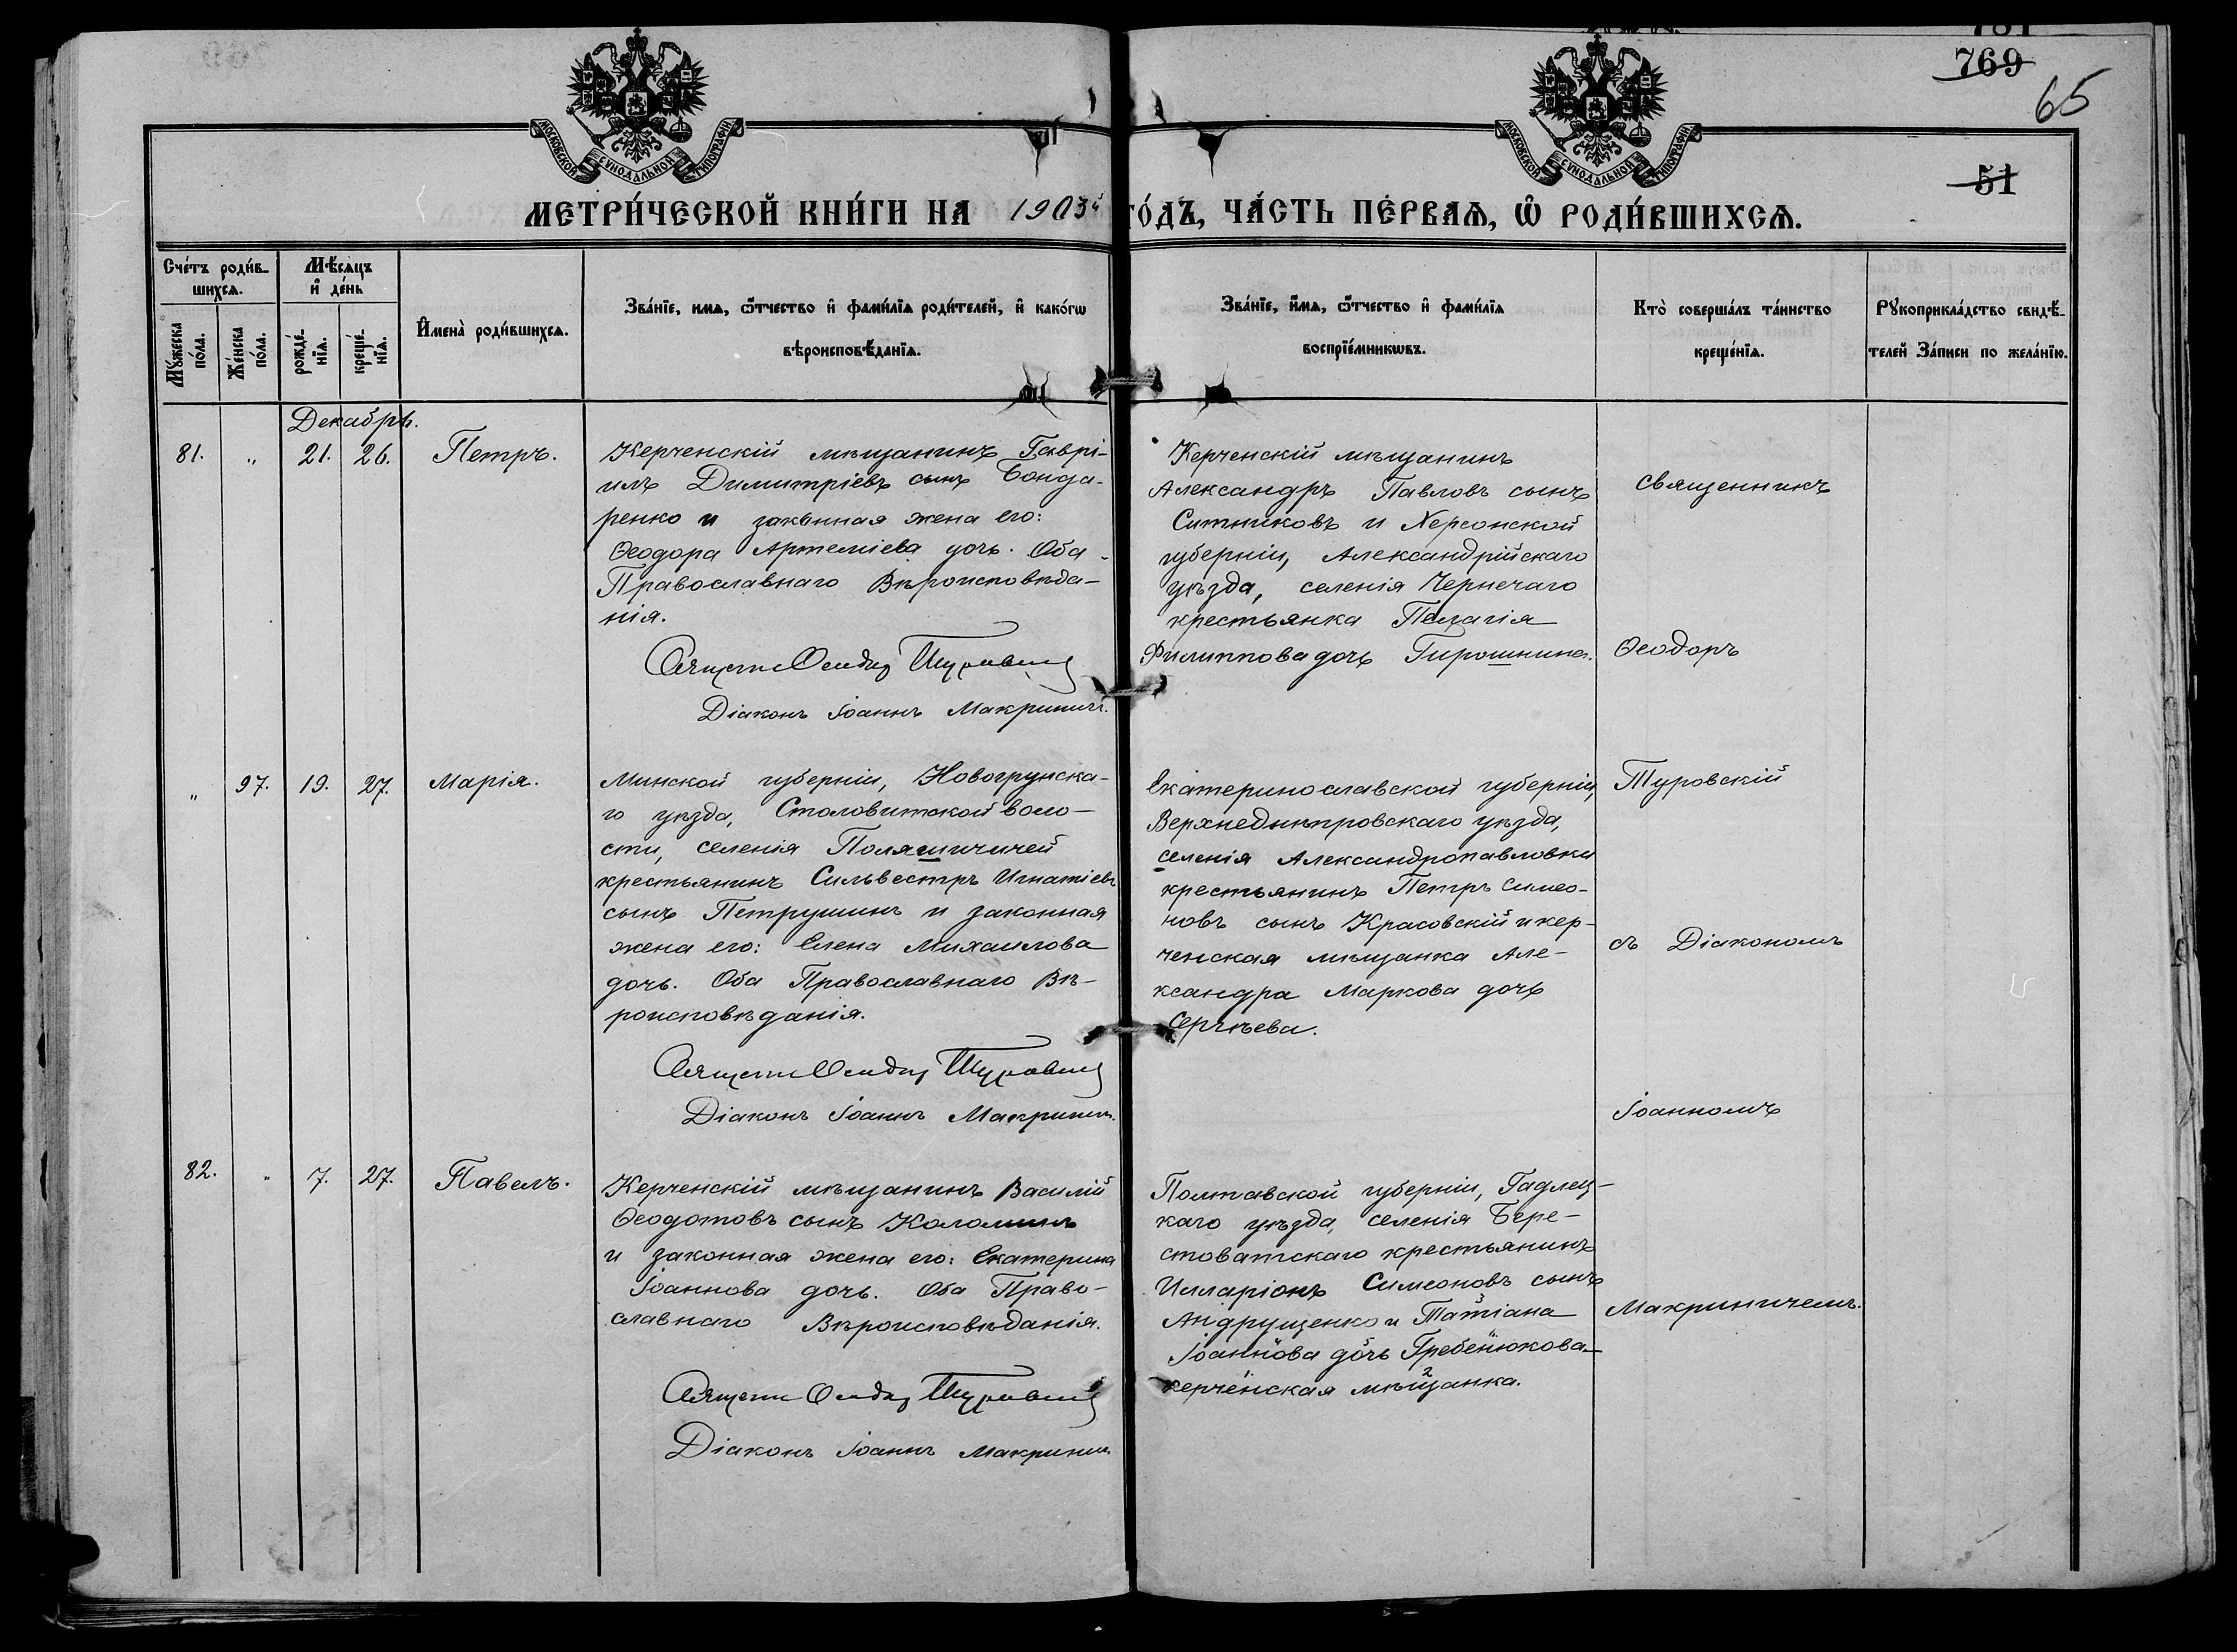 781
769
65
51
МОСКОВСКОЙ СѴНОДАЛЬНОЙ ТИПОГРАФІИ
МОСКОВСКОЙ СѴНОДАЛЬНОЙ ТИПОГРАФІИ
МЕТРИ́ЧЕСКОЙ КНИ́ГИ НА 1903й ГО́ДЪ, ЧА́СТЬ ПЕ́РВАѦ, Ѡ РОДИ́ВШИХСѦ.
Сче́тъ роди́в-
шихсѧ.
Мꙋ́жеска
по́ла.
Же́нска
по́ла.
Мѣ́сѧцъ
и҆ де́нь
рожде́-
нїѧ.
креще́-
нїѧ.
И҆мена̀ роди́вшихсѧ.
Зва́нїе, имѧ, ѻ҆́тчество и҆ фами́лїѧ роди́телей, и҆ како́гѡ
вѣроисповѣ́данїѧ.
Зва́нїе, и҆́мѧ, ѻ҆́тчество и҆ фами́лїѧ
воспрїе́мникѡвъ.
Кто̀ соверша́лъ та́инство
креще́нїѧ.
Рꙋкоприкла́дство свидѣ́-
телей За́писи по жела́нїю.
Декабрь.
81. „ 21. 26. Петръ.
Керченскій мѣщанинъ Гаврі-
илъ Димитріевъ сынъ Бонда-
ренко и законная жена его:
Ѳеодора Артеміева дочь. Оба
Православнаго Вѣроисповѣда-
нія.
Священ Ѳеодор Туровскій
Діаконъ Іоаннъ Макриничъ.
Керченскій мѣщанинъ
Александръ Павловъ сынъ
Ситниковъ и Херсонской
губерніи, Александрійскаго
уѣзда, селенія Чернечаго
крестьянка Пелагія
Филиппова дочь Гирошнина.
„ 97. 19. 27. Марія.
Минской губерніи, Новогрунска-
го уѣзда, Столовитской воло-
сти, селенія Поляшичичей
крестьянинъ Сильвестръ Игнатіевъ
сынъ Петрушинъ и законная
жена его: Елена Михаилова
дочь. Оба Православнаго Вѣ-
роисповѣданія.
Священ Ѳеодор Туровскій
Діаконъ Іоаннъ Макриничъ.
Екатеринославской губерніи,
Верхнеднѣпровскаго уѣзда,
селенія Александропавловки
крестьянинъ Петръ Симео-
новъ сынъ Красовскій и кер-
ченская мѣщанка Але-
ксандра Маркова дочь
Сергѣева.
82. „ 7. 27. Павелъ.
Керченскій мѣщанинъ Василій
Ѳеодотовъ сынъ Коломинъ
и законная жена его: Екатерина
Іоаннова дочь. Оба Право-
славнаго Вѣроисповѣданія.
Священ Ѳеодор Туровскій
Діаконъ Іоаннъ Макриничъ
Полтавской губерніи, Гадлец-
каго уѣзда, селенія Бере-
стоватскаго крестьянинъ
Илларіонъ Симеоновъ сынъ
Андрущенко и Татіана
Іоаннова дочь Гребенюкова
керченская мѣщанка.
священникъ
Ѳеодоръ
Туровскій
съ Діакономъ
Іоанномъ
Макриничемъ.